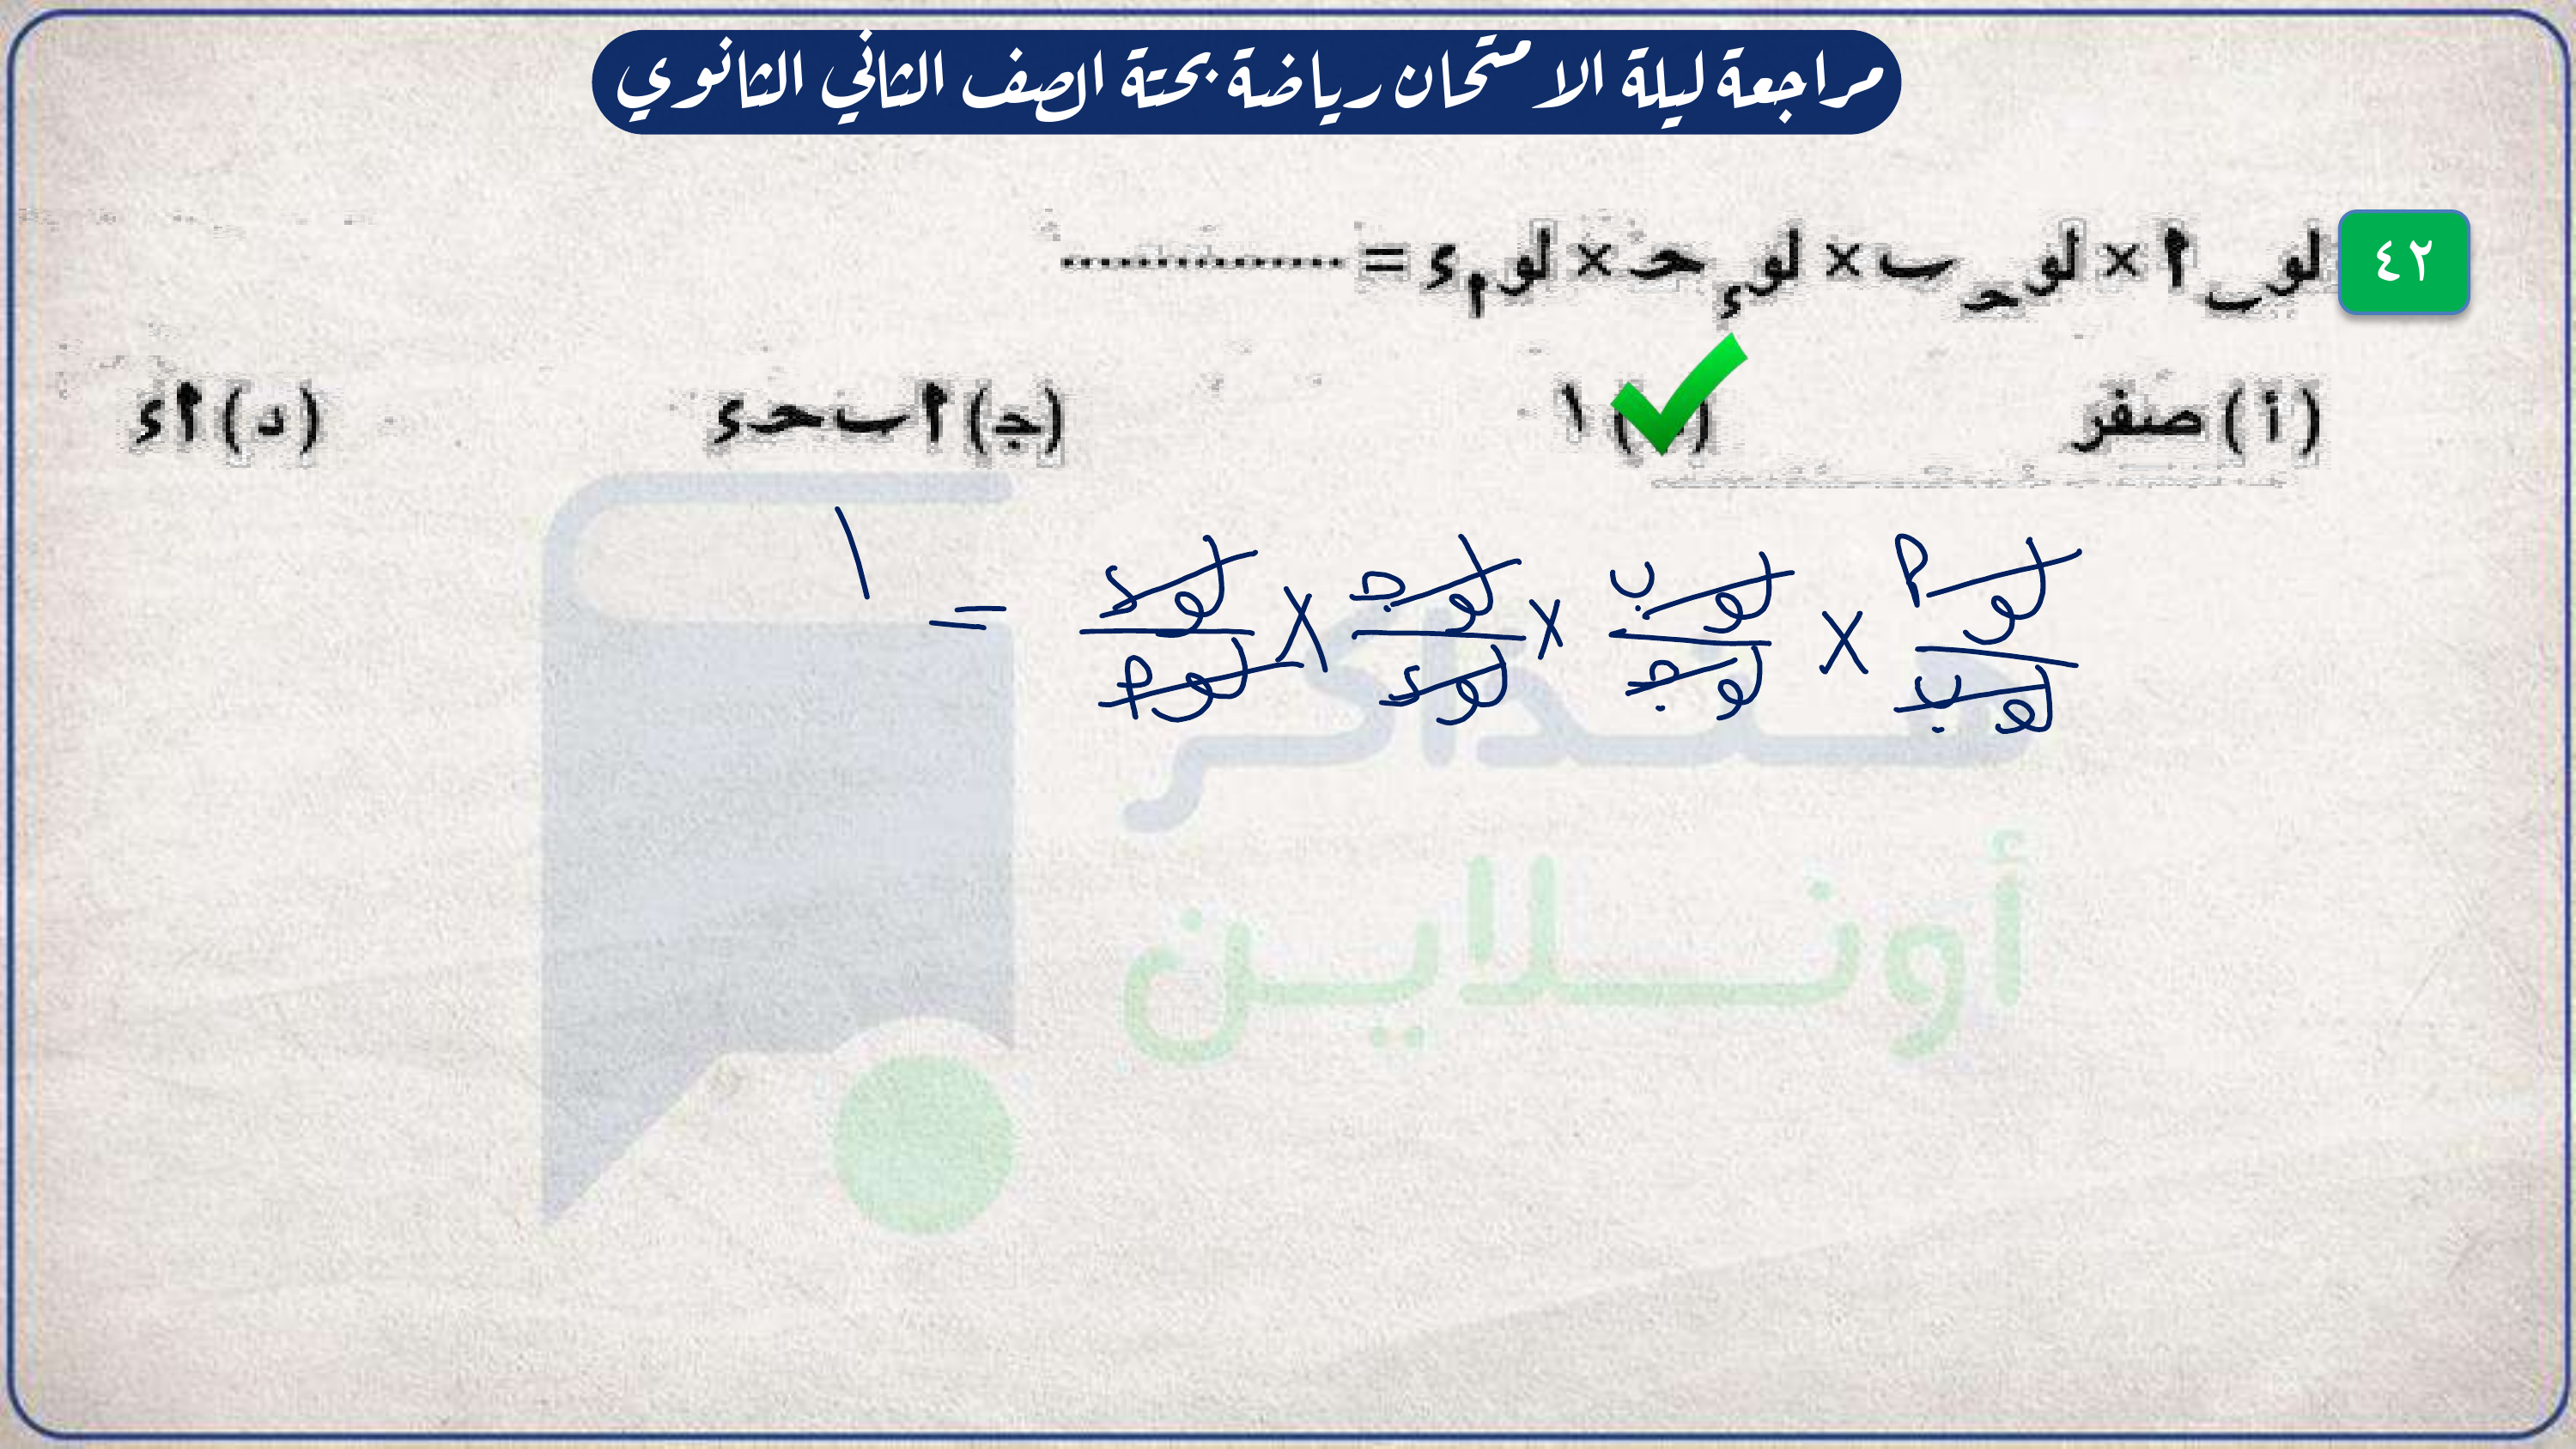 مراجعة ليلة الامتحان رياضة بحتة الصف الثاني الثانوي
٤٢ لوب أ × لوحـ ب × لوء حـ × لوأ ء = ..............
(أ) صفر ( ) ١ (جـ) أ ب حـ ء (د) أ ء
لو أ / لو ب × لو ب / لو جـ × لو جـ / لو د × لو د / لو أ = ١
مذاكر
أونلاين